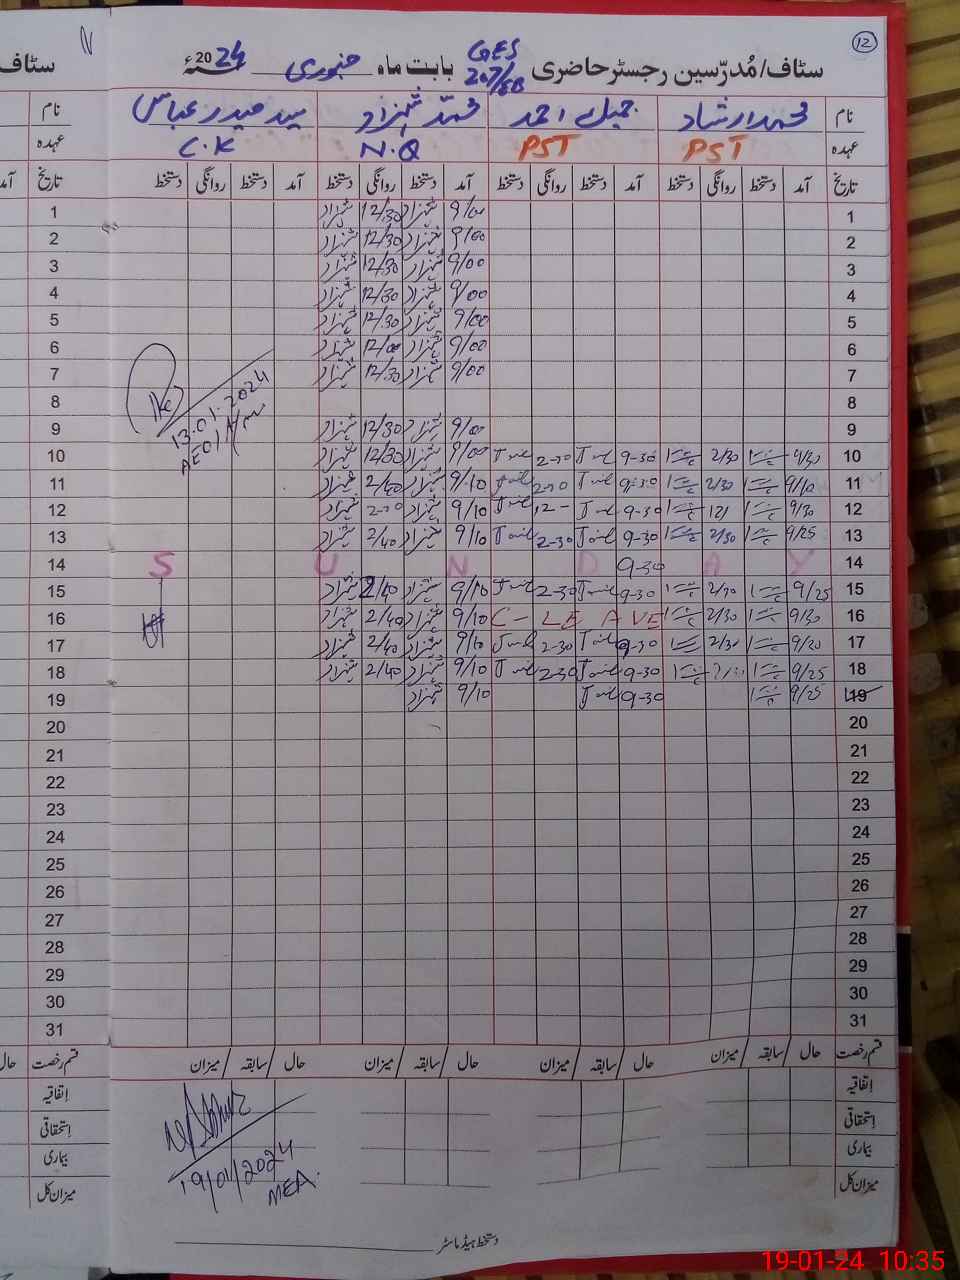 12
سٹاف/مُدرّسین رجسٹر حاضری GES 207/EB بابت ماہ جنوری 2024ء
سٹاف
نام محمد ارشاد جمیل احمد محمد شہزاد سید حیدر عباس نام
عہدہ PST PST N.Q C.K عہدہ
تاریخ آمد دستخط روانگی دستخط آمد دستخط روانگی دستخط آمد دستخط روانگی دستخط آمد دستخط روانگی دستخط تاریخ آمد
1 9/00 شہزاد 12/30 شہزاد 1
2 9/00 شہزاد 12/30 شہزاد 2
3 9/00 شہزاد 12/30 شہزاد 3
4 9/00 شہزاد 12/30 شہزاد 4
5 9/00 شہزاد 12/30 شہزاد 5
6 9/00 شہزاد 12/00 شہزاد 6
7 9/00 شہزاد 12/30 شہزاد 7
8 8
9 9/00 شہزاد 12/30 شہزاد 9
13.01.2024
AEO
10 2/30 9-30 9/00 شہزاد 12/30 شہزاد 10
11 9/10 2/30 9-30 9/10 شہزاد 2/40 شہزاد 11
12 9/30 9-30 12- 9/10 شہزاد شہزاد 12
13 9/25 2/30 9-30 2-30 9/10 شہزاد 2/40 شہزاد 13
14 S U N D A Y 9-30 14
15 9/25 9-30 2-30 9/10 شہزاد 2/40 شہزاد 15
16 9/30 2/30 C-LEAVE 9/10 شہزاد 2/40 شہزاد 16
17 9/20 2/30 9-30 2-30 9/10 شہزاد 2/40 شہزاد 17
18 9/25 9-30 2-30 9/10 شہزاد 2/40 شہزاد 18
19 9/25 9-30 9/10 شہزاد 19
20 20
21 21
22 22
23 23
24 24
25 25
26 26
27 27
28 28
29 29
30 30
31 31
قسم رخصت حال / سابقہ / میزان حال / سابقہ / میزان حال / سابقہ / میزان حال / سابقہ / میزان قسم رخصت حال
اتفاقیہ اتفاقیہ
استحقاقی استحقاقی
بیماری بیماری
میزان کل میزان کل
19/01/2024
MEA.
دستخط ہیڈ ماسٹر
19-01-24 10:35